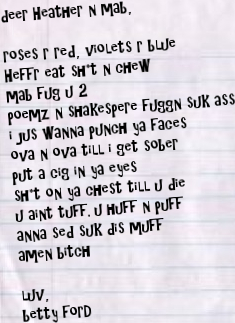 deer Heather N Mab,
roses r red, violets r blue
Heffr eat sh*t N CHeW
Mab Fug u 2
poemz N SHakespere Fuggn suk ass
i jus wanna punch ya Faces
ova N ova till i get sober
put a cig in ya eyes
sh*t on ya chest till u die
u aint tuff. u Huff N puff
anna sed suk dis Muff
amen bitch
luv,
betty Ford